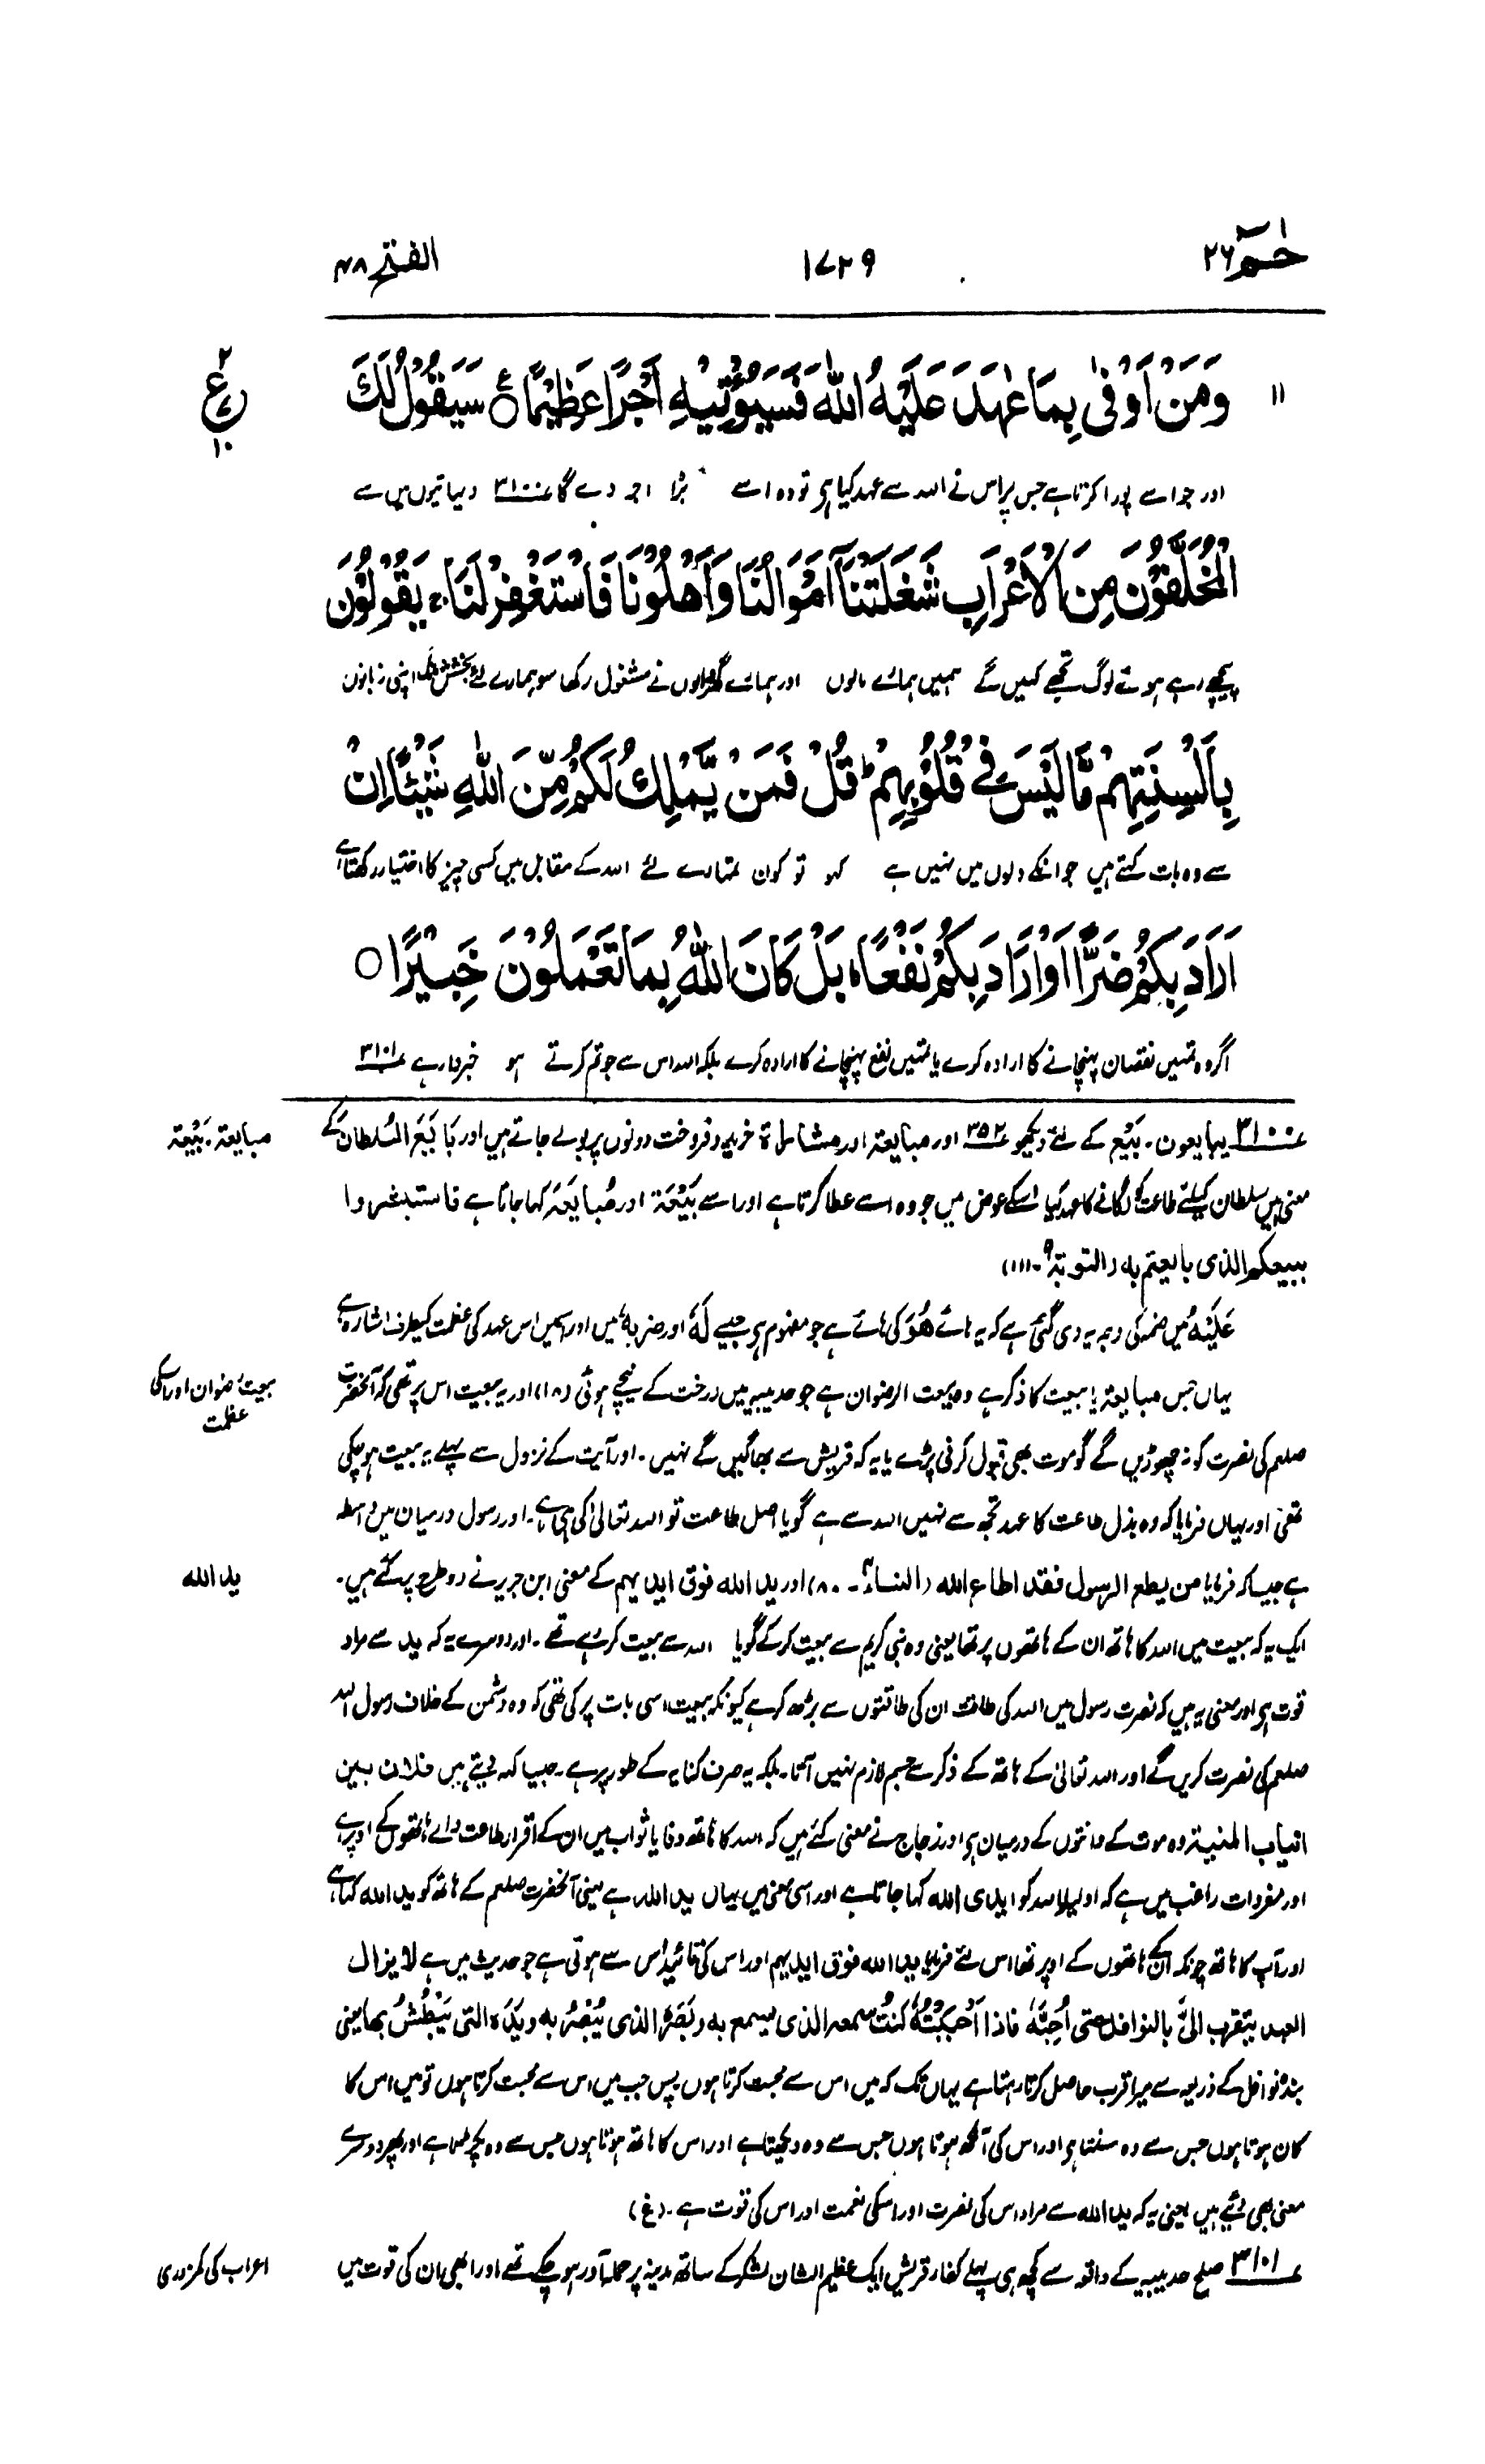 حٰمٓ ۲۶
۱۷۲۹
الفتح ۴۸
۱۱
وَمَنْ اَوْفٰى بِمَا عٰهَدَ عَلَيْهُ اللّٰهَ فَسَيُؤْتِيْهِ اَجْرًا عَظِيْمًا ۝ع سَيَقُوْلُ لَكَ
۲
ع
۱۰
اور جو اسے پورا کرتا ہے جس پر اس نے اللہ سے عہد کیا ہی تو وہ اسے بڑا اجر دے گا ۳۱۰۰ دیہاتیوں میں سے
الْمُخَلَّفُوْنَ مِنَ الْاَعْرَابِ شَغَلَتْنَآ اَمْوَالُنَا وَاَهْلُوْنَا فَاسْتَغْفِرْ لَنَا ۚ يَقُوْلُوْنَ
پیچھے رہے ہوئے لوگ تجھے کہیں گے ہمیں ہمارے مالوں اور ہمارے گھر والوں نے مشغول رکھا سو ہمارے لئے بخشش مانگ اپنی زبانوں
بِاَلْسِنَتِهِمْ مَّا لَيْسَ فِيْ قُلُوْبِهِمْ ؕ قُلْ فَمَنْ يَّمْلِكُ لَكُمْ مِّنَ اللّٰهِ شَيْـًٔا اِنْ
سے وہ بات کہتے ہیں جو انکے دلوں میں نہیں ہے کہو تو کون تمہارے لئے اللہ کے مقابل میں کسی چیز کا اختیار رکھتا ہے
اَرَادَ بِكُمْ ضَرًّا اَوْ اَرَادَ بِكُمْ نَفْعًا ؕ بَلْ كَانَ اللّٰهُ بِمَا تَعْمَلُوْنَ خَبِيْرًا ۝
اگر وہ تمہیں نقصان پہنچانے کا ارادہ کرے یا تمہیں نفع پہنچانے کا ارادہ کرے بلکہ اللہ اس سے جو تم کرتے ہو خبردار ہے ۳۱۰۱
۳۱۰۰ یبایعون۔ بَیْع کے لئے دیکھو ۳۵۲ اور مبایعۃ اور مشاراۃ خرید و فروخت دونوں پر بولے جاتے ہیں اور بَایَعَ السُلطانَ کے
مبایعۃ۔ بَیْعۃ
معنی ہیں سلطان کیلئے طاعت کو لگانے کا عہد کیا اسکے عوض میں جو وہ اسے عطا کرتا ہے اور اسے بَیْعَۃ اور مُبایَعَۃ کہا جاتا ہے فاستبشروا
ببیعکم الذی بایعتم بہ (التوبۃ ۹۔ ۱۱۱)
عَلَیْہُ میں ضمہ کی وجہ یہ دی گئی ہے کہ یہ ہائے ھُوَ کی ہائے ہے جو مضموم ہی جیسے لَہٗ اور ضربہٗ میں اور اسمیں اس عہد کی عظمت کیطرف اشارہ ہے
یہاں جس مبایعۃ یا بیعت کا ذکر ہے وہ بیعت الرضوان ہے جو حدیبیہ میں درخت کے نیچے ہوئی (۱۸) اور یہ بیعت اس پر تھی کہ آنحضرت
بیعت رضوان اور اسکی
عظمت
صلعم کی نصرت کو نہ چھوڑیں گے گو موت بھی قبول کرنی پڑے یا یہ کہ قریش سے بھاگیں گے نہیں۔ اور آیت کے نزول سے پہلے یہ بیعت ہو چکی
تھی اور یہاں فرمایا کہ وہ بذل طاعت کا عہد تجھ سے نہیں اللہ سے ہے گویا اصل طاعت تو اللہ تعالیٰ کی ہی ہے۔ اور رسول درمیان میں واسطہ
ہے جیسا کہ فرمایا من یطع الرسول فقد اطاع اللہ (النساء ۴۔ ۸۰) اور ید اللہ فوق ایدیہم کے معنی ابن جریر نے دو طرح پر کئے ہیں۔
ید اللہ
ایک یہ کہ بیعت میں اللہ کا ہاتھ ان کے ہاتھوں پر تھا یعنی وہ نبی کریم سے بیعت کر کے گویا اللہ سے بیعت کر رہے تھے۔ اور دوسرے یہ کہ ید سے مراد
قوت ہی اور معنی یہ ہیں کہ نصرت رسول میں اللہ کی طاقت ان کی طاقتوں سے بڑھ کر ہے کیونکہ بیعت اسی بات پر کی تھی کہ وہ دشمن کے خلاف رسول اللہ
صلعم کی نصرت کریں گے اور اللہ تعالیٰ کے ہاتھ کے ذکر سے جسم لازم نہیں آتا۔ بلکہ یہ صرف کنایہ کے طور پر ہے۔ جیسا کہہ دیتے ہیں فلان بین
انیاب المنیۃ وہ موت کے دانتوں کے درمیان ہی اور زجاج نے معنی کئے ہیں کہ اللہ کا ہاتھ وفا یا ثواب میں ان کے اقرار طاعت والے ہاتھوں کے اوپر ہے
اور مفردات راغب میں ہے کہ اولیاء اللہ کو ایدی اللہ کہا جاتا ہے اور اسی معنی میں یہاں ید اللہ ہے یعنی آنحضرت صلعم کے ہاتھ کو ید اللہ کہا ہے
اور آپ کا ہاتھ چونکہ انکے ہاتھوں کے اوپر تھا اس لئے فرمایا ید اللہ فوق ایدیہم اور اس کی تائید اُس سے ہوتی ہے جو حدیث میں ہے لا یزال
العبد یتقرب الیَّ بالنوافل حتی اُحِبَّہٗ فاذا اَحْبَبْتُہٗ کنتُ سمعہ الذی یسمع بہ وبَصَرَہُ الذی یُبْصِرُ بہ ویَدَہ التی یَبْطُشُ بھا یعنی
بندہ نوافل کے ذریعہ سے میرا قرب حاصل کرتا رہتا ہے یہاں تک کہ میں اس سے محبت کرتا ہوں پس جب میں اس سے محبت کرتا ہوں تو میں اس کا
کان ہوتا ہوں جس سے وہ سنتا ہی اور اس کی آنکھ ہوتا ہوں جس سے وہ دیکھتا ہے اور اس کا ہاتھ ہوتا ہوں جس سے وہ پکڑتا ہے اور پھر دوسرے
معنی بھی دیئے ہیں یعنی یہ کہ ید اللہ سے مراد اس کی نصرت اور اسکی نعمت اور اس کی قوت ہے۔ (غ)
۳۱۰۱ صلح حدیبیہ کے واقعہ سے کچھ ہی پہلے کفار قریش ایک عظیم الشان لشکر کے ساتھ مدینہ پر حملہ آور ہو چکے تھے اور ابھی ان کی قوت میں
اعراب کی کمزوری